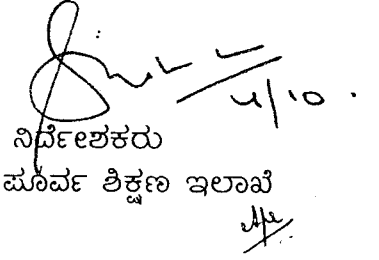 4/10 .
ನಿರ್ದೇಶಕರು
ಪೂರ್ವ ಶಿಕ್ಷಣ ಇಲಾಖೆ